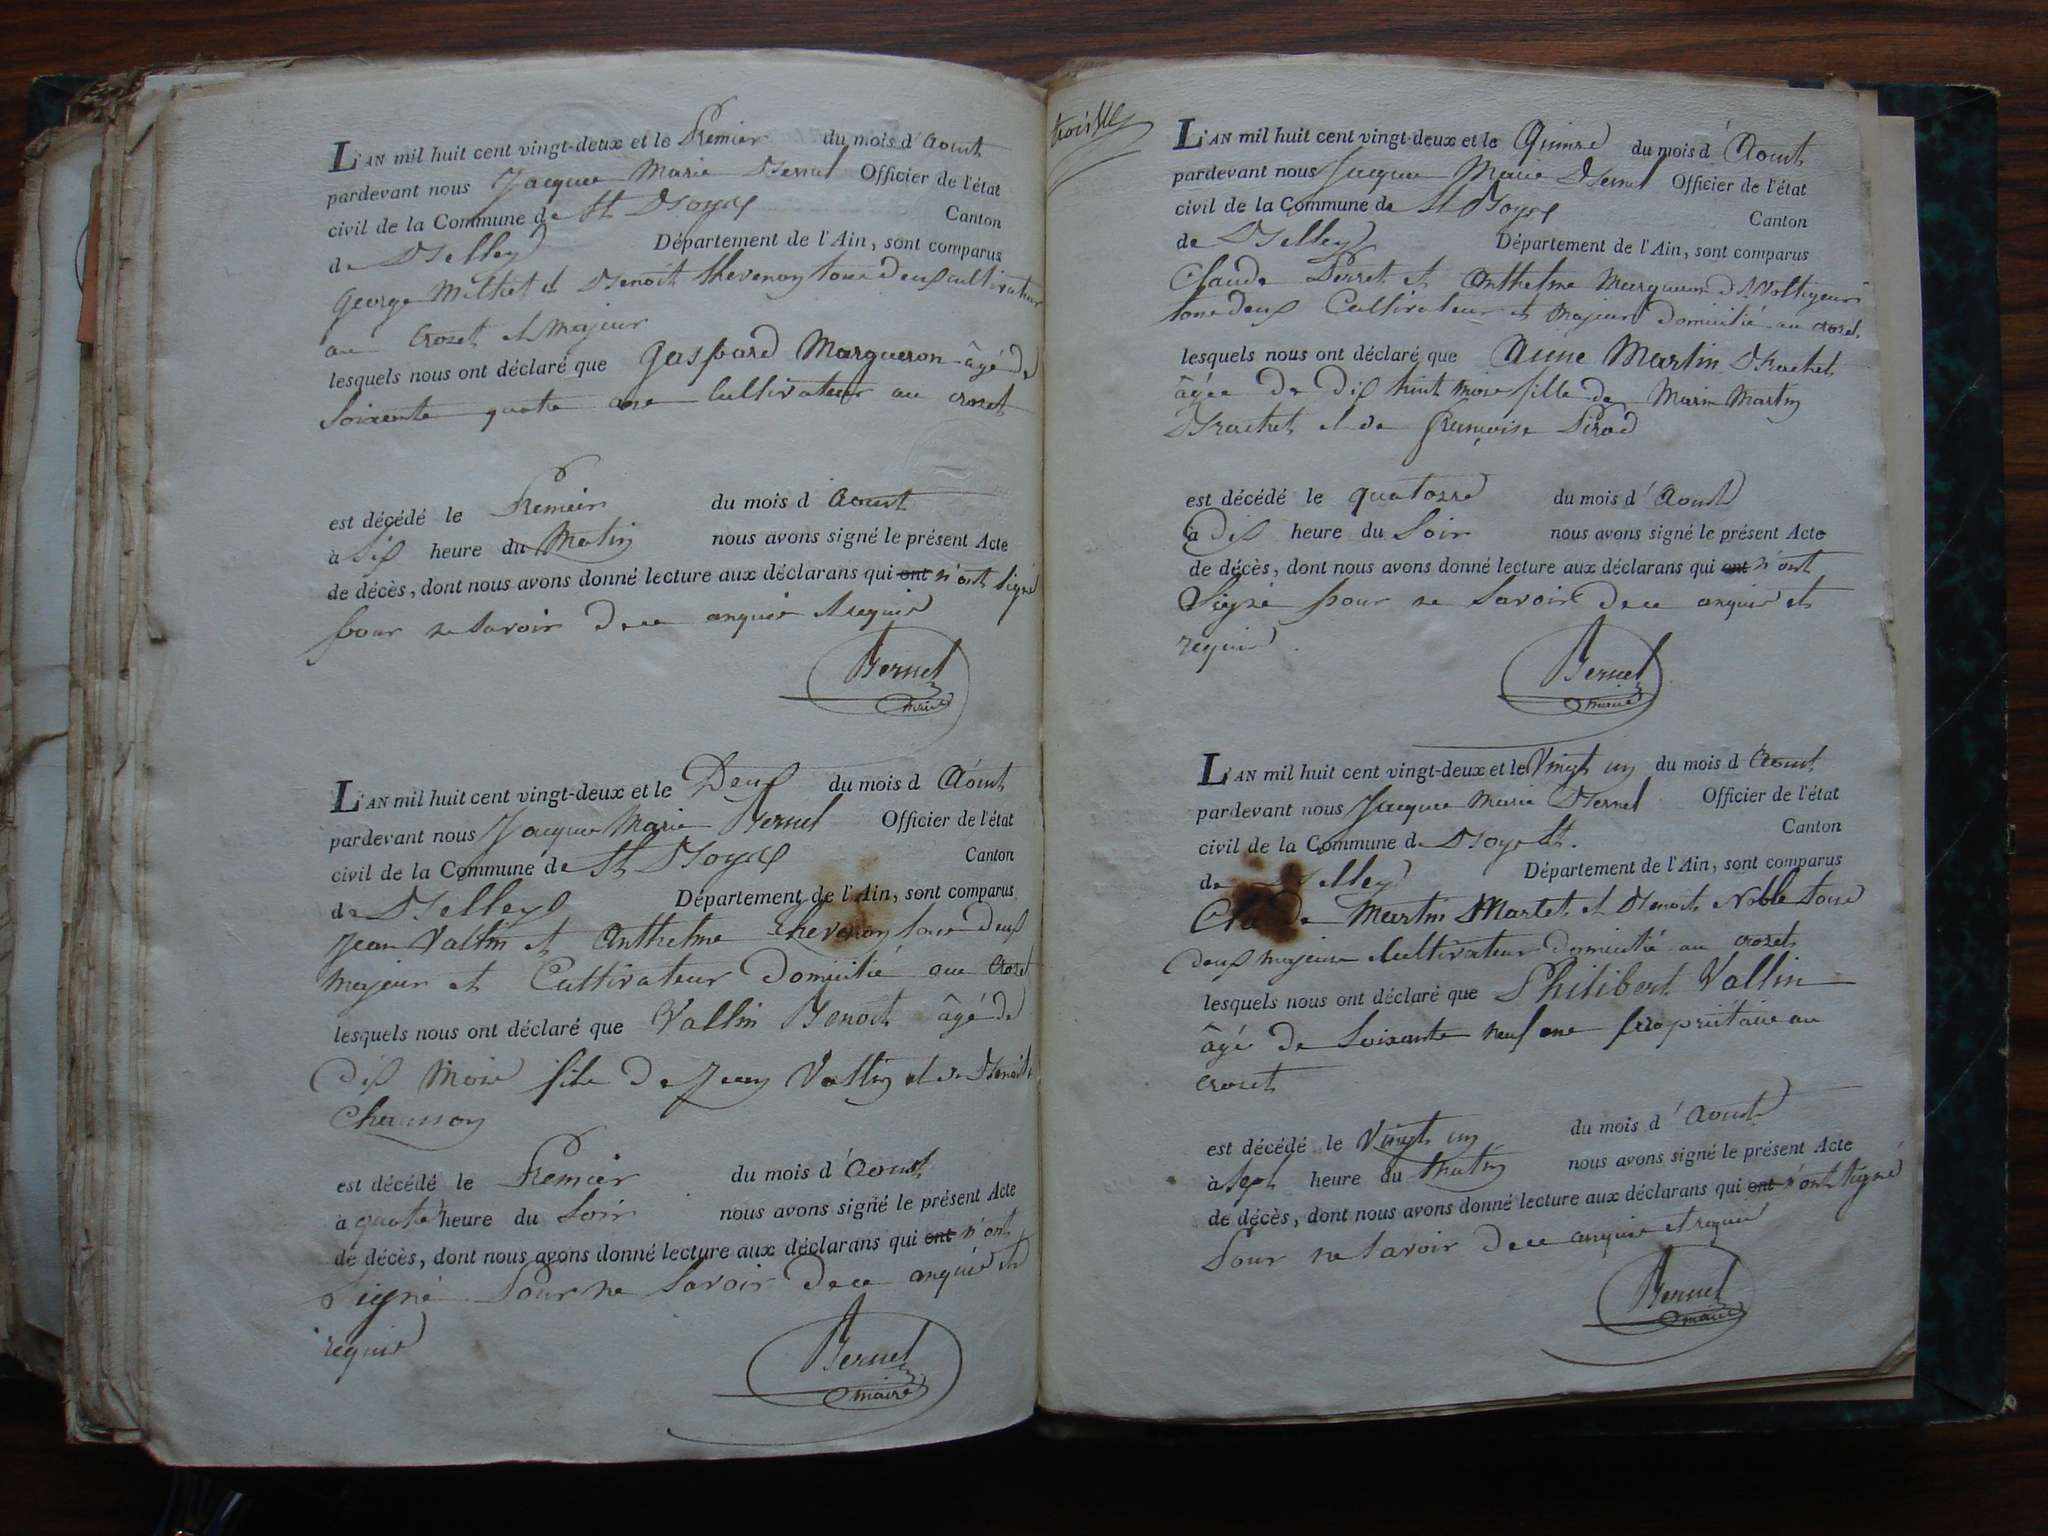 L'AN mil huit cent vingt-deux et le Premier du mois d'Aout
pardevant nous Jacque Marie Bernel Officier de l'état
civil de la Commune de St Boys Canton
de Belley Département de l'Ain, sont comparus
George Milliet et Benoit thevenon tous deux cultivateur
au Crozet et majeur
lesquels nous ont déclaré que Gaspard Margueron âgé de
Soixante quatre ans Cultivateur au crozet
est décédé le Premier du mois d Aout
à Six heure du Matin nous avons signé le présent Acte
de décès, dont nous avons donné lecture aux déclarans qui ont n'ont signé
pour ne savoir de ce anquis et requis
Bernel
maire
L'AN mil huit cent vingt-deux et le Deux du mois d Aout
pardevant nous Jacque Marie Bernel Officier de l'état
civil de la Commune de St Boys Canton
de Belley Département de l'Ain, sont comparus
Jean Vallin et Anthelme thevenon tous deux
majeur et Cultivateur Domicilié au Crozet
lesquels nous ont déclaré que Vallin Benoit âgé de
Dix Mois fils de Jean Vallin et de Benoite
Chausson
est décédé le Premier du mois d'Aout
à quatre heure du Soir nous avons signé le présent Acte
de décès, dont nous avons donné lecture aux déclarans qui ont n'ont
Signé Pour ne Savoir de ce anquis et
requis
Bernel
maire
L'AN mil huit cent vingt-deux et le Quinze du mois d'Aout
pardevant nous Jacque Marie Bernel Officier de l'état
civil de la Commune de St Boys Canton
de Belley Département de l'Ain, sont comparus
Claude Perret et Anthelme Margueron dt Voltigeur
tous deux Cultivateur et majeur domicilié au crozet
lesquels nous ont déclaré que Anne Martin Brachet
âgée de dix huit mois fille de Marin Martin
Brachet et de Françoise Pirod
est décédé le quatorze du mois d'Aout
à Dix heure du Soir nous avons signé le présent Acte
de décès, dont nous avons donné lecture aux déclarans qui ont n'ont
Signé pour ne Savoir de ce anquis et
requis
Bernel
maire
L'AN mil huit cent vingt-deux et le Vingt un du mois d'Aout
pardevant nous Jacque Marie Bernel Officier de l'état
civil de la Commune de Boys St. Canton
de Belley Département de l'Ain, sont comparus
Claude Martin Martet et Benoit Noble tous
deux majeurs Cultivateur Domicilié au crozet
lesquels nous ont déclaré que Philibert Vallin
âgé de Soixante neuf ans propriétaire au
crozet
est décédé le Vingt un du mois d'Aout
à Sept heure du Matin nous avons signé le présent Acte
de décès, dont nous avons donné lecture aux déclarans qui ont n'ont signé
Pour ne Savoir de ce anquis et requis
Bernel
maire